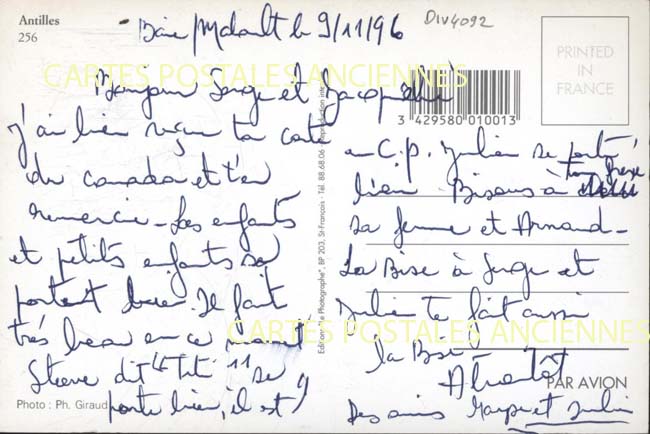 Antilles
256
Baie Mahault le 9/11/96
DIV4092
PRINTED
IN
FRANCE
CARTES POSTALES ANCIENNES
3 429580 010013
Bonjour Serge et Jacqueline
j'ai bien reçu ta carte
du canada et t'en
remercie - Les enfants
et petits enfants se
portent bien. Il fait
très beau en ce moment
Steeve dit "Titi" se
porte bien, il est
en C.P. Julien se porte
bien - Bisous à ton frère
sa femme et Armand -
La Bise à Serge et
Julien te fait aussi
la Bise
A bientôt
Des amis et Julien
CARTES POSTALES ANCIENNES
PAR AVION
Photo : Ph. Giraud
Photographe", BP 203, St-François - Tél. 88.68.06